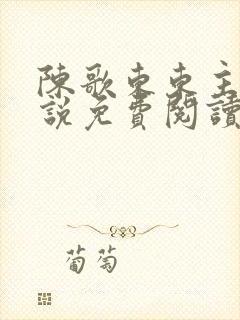 陳歌東東主
說免費閱讀
葡萄